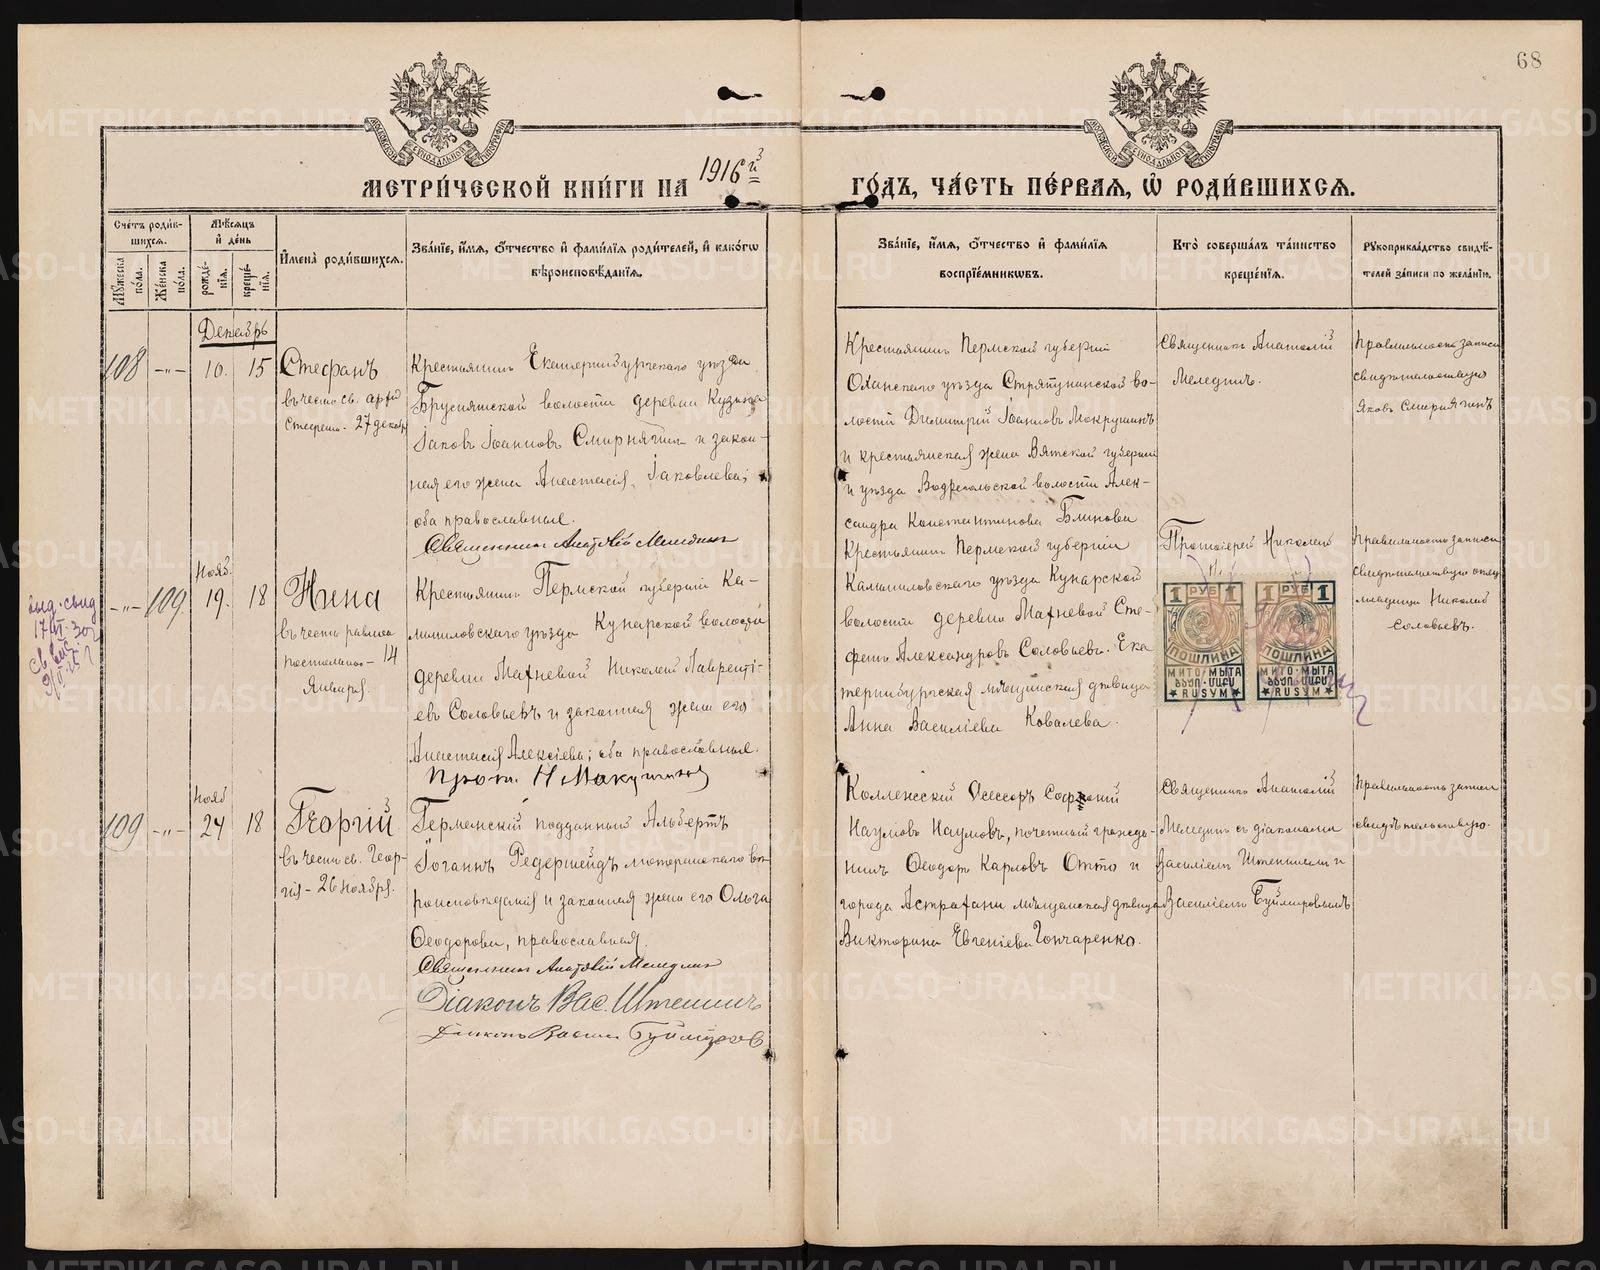 68
МЕТРИ́ЧЕСКОЙ КНИ́ГИ НА 1916й ГО́ДЪ, ЧА́СТЬ ПЕ́РВАЯ, Ѽ РОДИ́ВШИХСЯ.
Сче́тъ роди́в-
шихся.
Мѣ́сяцъ
и҆ де́нь
Мꙋ́жеска
по́ла.
Же́нска
по́ла.
рожде́-
нїѧ.
креще́-
нїѧ.
И҆мена̀ роди́вшихся.
Зва́нїе, и҆́мя, ѻ҆́тчество и҆ фами́лїя роди́телей, и҆ како́гѡ
вѣроисповѣ́данїя.
Зва́нїе, и҆́мя, ѻ҆́тчество и҆ фами́лїя
воспрїе́мникѡвъ.
Кто̀ соверша́лъ та́инство
креще́нїя.
Рꙋкоприкла́дство свидѣ́-
телей за́писи по жела́нїю.
Декабрь
108 -"- 10. 15
Стефанъ
въ честь св. архид
Стефана. 27 декабр
Крестьянинъ Екатеринбургскаго уѣзда
Бруснятской волости деревни
Іаковъ Іоанновъ Смирнягинъ и закон-
ная его жена Анастасія Іаковлева;
оба православные.
Священникъ Анатолій Мелединъ
Крестьянинъ Пермской губерніи
Оханскаго уѣзда Стряпунинской во-
лости Димитрій Іоанновъ Мокрушинъ
и крестьянская жена Вятской губерніи
и уѣзда волости Алек-
сандра Константинова Блинова
Священникъ Анатолій
Мелединъ.
Правильность записи
свидѣтельствую
Яковъ Смирнягинъ
Нояб.
-"- 109 19. 18
Нина
въ честь равноа
постольной - 14
Января.
Крестьянинъ Пермской губерніи Ка-
мышловскаго уѣзда Кунарской волости
деревни Махневой Николай Лавренті-
евъ Соловьевъ и законная жена его
Анастасія Алексіева; оба православные.
Прот. Н Макушинъ
Крестьянинъ Пермской губерніи
Камышловскаго уѣзда Кунарской
волости деревни Махневой Сте-
фанъ Александровъ Соловьевъ. Ека
теринбургская мѣщанская дѣвица
Анна Василіева Ковалева.
Протоіерей Николай
Правильность записи
свидѣтельствую отецъ
младенца Николай
Соловьевъ.
1 РУБ 1
ПОШЛИНА
МИТО · МЫТА
RUSYM
1 РУБ 1
ПОШЛИНА
МИТО · МЫТА
RUSYM
Нояб
109 -"- 24 18
Георгій
въ честь св. Геор-
гія - 26 ноября.
Германскій подданный Альбертъ
Іоганъ Редершейдъ лютеранскаго вѣ-
роисповѣданія и законная жена его Ольга
Ѳеодорова, православная.
Священникъ Анатолій Меледин
Діаконъ Вас. Штешинъ
Коллежскій Асессоръ
Наумовъ Наумовъ, почетный гражда-
нинъ Ѳеодоръ Карловъ Отто и
города Астрахани мѣщанская дѣвица
Викторина Евгеніева Гончаренко.
Священникъ Анатолій
Меледин съ діаконами
Василіемъ и
Василіемъ
Правильность записи
свидѣтельствую.